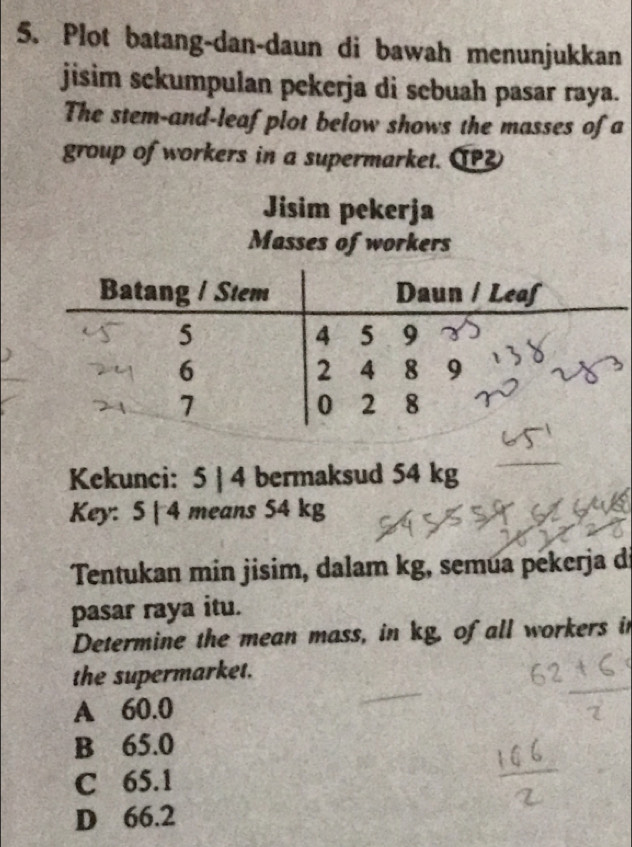 5. Plot batang-dan-daun di bawah menunjukkan
jisim sekumpulan pekerja di sebuah pasar raya.
The stem-and-leaf plot below shows the masses of a
group of workers in a supermarket. TP2
Jisim pekerja
Masses of workers
Batang / Stem Daun / Leaf
5 4 5 9
6 2 4 8 9 138
7 0 2 8
651
Kekunci: 5 | 4 bermaksud 54 kg
Key: 5 | 4 means 54 kg
54 55 59 62 64
Tentukan min jisim, dalam kg, semua pekerja di
pasar raya itu.
Determine the mean mass, in kg, of all workers in
the supermarket.
62 + 6
2
A 60.0
B 65.0
C 65.1
D 66.2
166
2